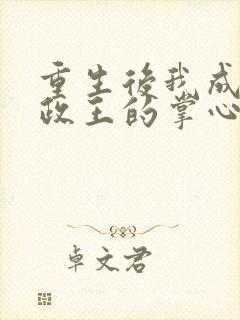 重生後我成
政王的掌心
卓文君